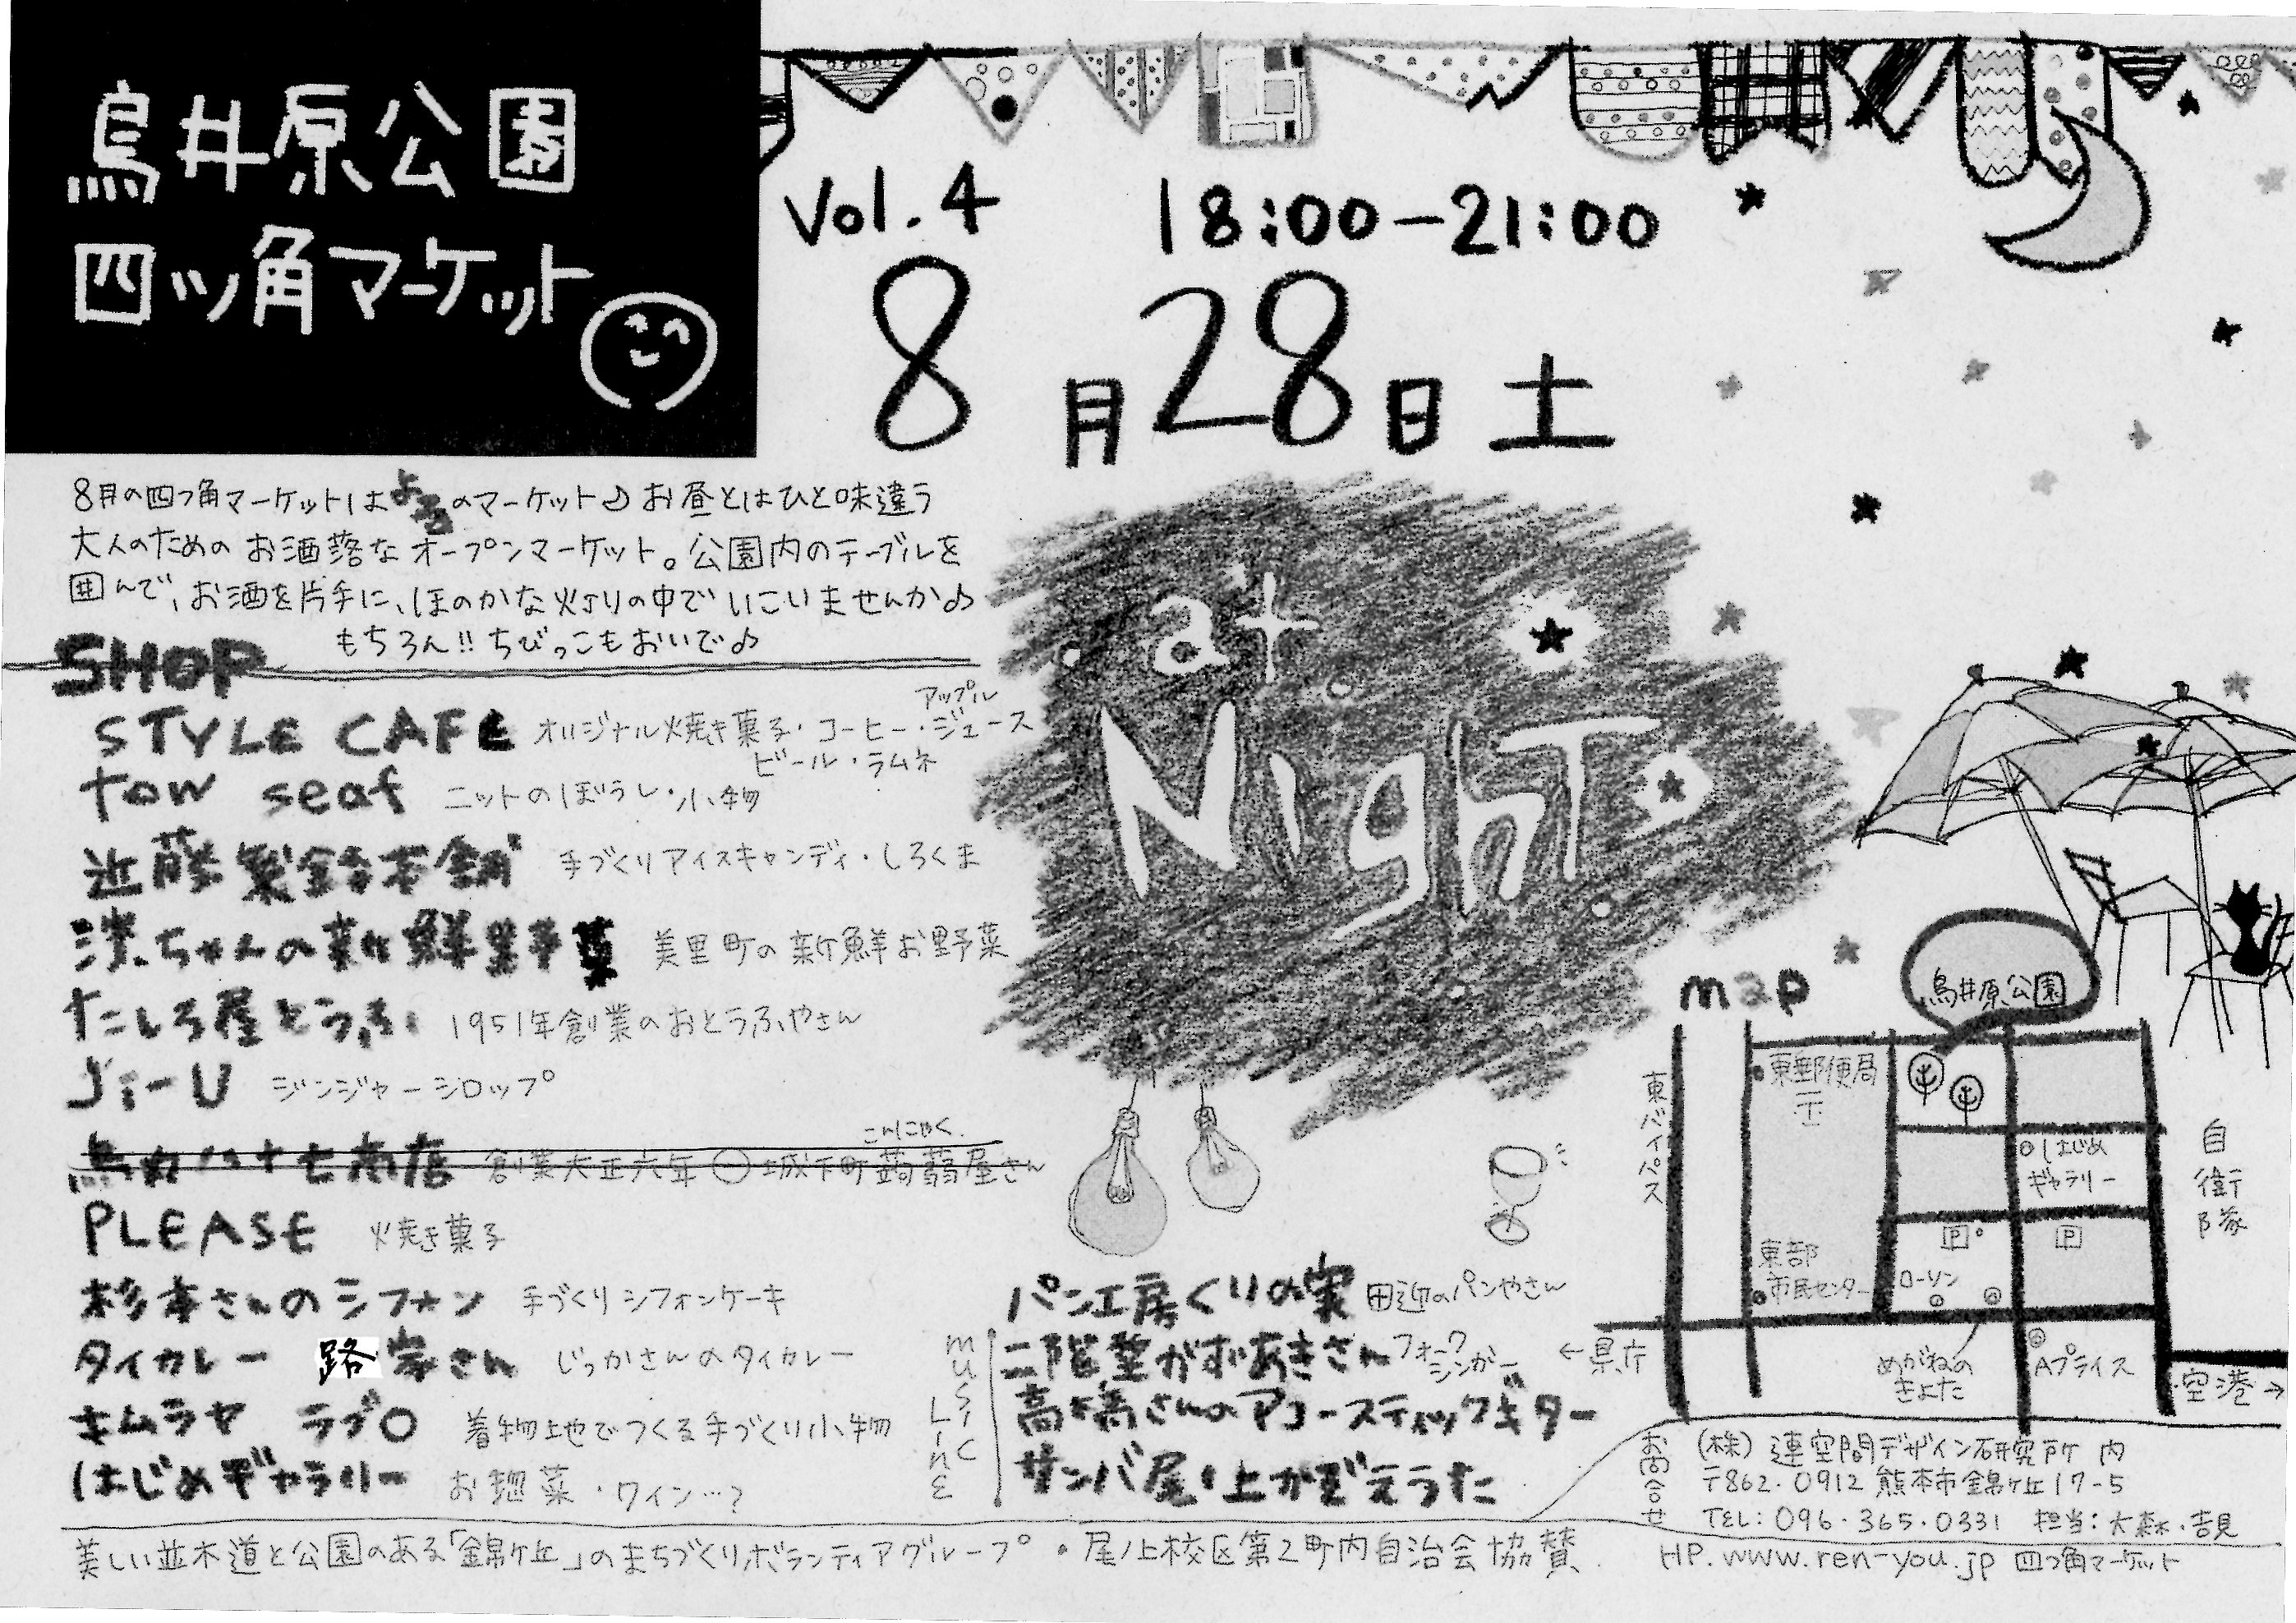 鳥井原公園
四ツ角マーケット
Vol.4 18:00−21:00
8月28日土
8月の四つ角マーケットはよるのマーケット♪お昼とはひと味違う
大人のための お洒落な オープンマーケット。公園内のテーブルを
囲んで、お酒を片手に、ほのかな灯りの中で いこいませんか♪
もちろん!! ちびっこもおいで♪
SHOP
STYLE CAFE オリジナル焼き菓子・コーヒー・アップルジュース
ビール・ラムネ
tow seaf ニットのぼうし・小物
近藤製鈴本舗 手づくりアイスキャンディ・しろくま
ちゃんの新鮮野菜 美里町の新鮮お野菜
たしろ屋とうふ 1951年創業のおとうふやさん
Ji-U ジンジャーシロップ
こんにゃく
創業大正六年 城下町蒟蒻屋さん
PLEASE 焼き菓子
杉本さんのシフォン 手づくりシフォンケーキ
タイカレー 路家さん じっかさんのタイカレー
キムラヤ ラブ〇 着物地でつくる手づくり小物
はじめギャラリー お惣菜・ワイン…?
at
NighT
パン工房くりの実 田迎のパンやさん
music Line
二階堂かずあきさん フォークシンガー
高橋さんのアコースティックギター
サンバ尾ノ上かぞえうた
map
鳥井原公園
東バイパス
東郵便局
〒
はじめ
ギャラリー
自衛隊
P P
東部
市民センター
ローソン
←県庁
めがねの
きよた
Aプライス
空港→
お問合せ
(株) 連空間デザイン研究所 内
〒862-0912 熊本市錦ヶ丘17-5
TEL:096-365-0331 担当:大森・吉見
HP.www.ren-you.jp 四つ角マーケット
美しい並木道と公園のある「錦ヶ丘」のまちづくりボランティアグループ・尾ノ上校区第2町内自治会協賛